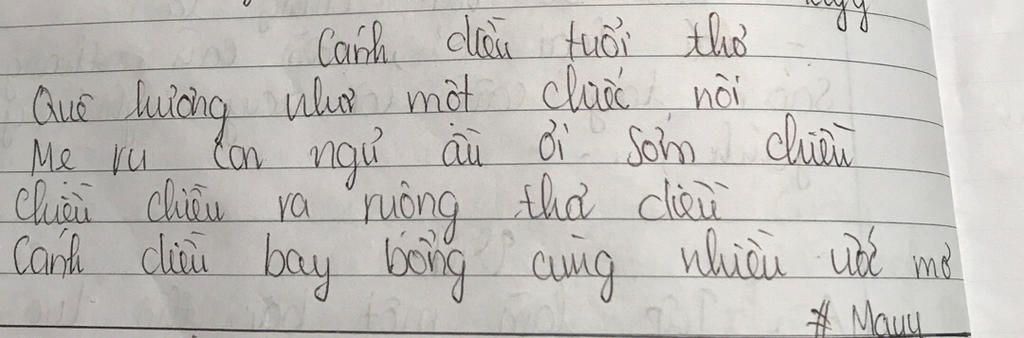 Cánh diều tuổi thơ
Quê hương như một chiếc nôi
Mẹ ru con ngủ ầu ơi sớm chiều
Chiều chiều ra ruộng thả diều
Cánh diều bay bổng cùng nhiều ước mơ
# Mauu